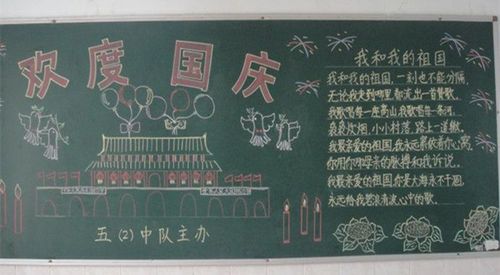 欢度国庆
五(2)中队主办
我和我的祖国
我和我的祖国,一刻也不能分隔
无论我走到哪里都流出一首赞歌.
我歌唱每一座高山,我歌唱每一条河.
袅袅炊烟,小小村落,路上一道辙.
我最亲爱的祖国,我永远紧依着你心窝,
你用你那母亲的脉搏和我诉说.
我最亲爱的祖国,你是大海永不干涸.
永远给我碧浪清波心中的歌.